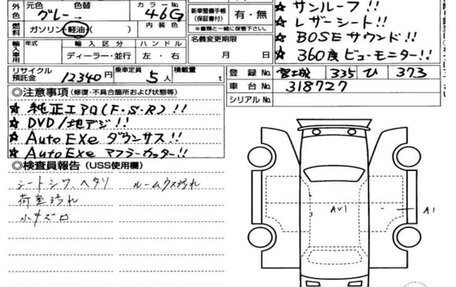 外色 元色 グレー 色替 カラーNo. 46G 新車整備手帳(保証書付) 有・無
☆ サンルーフ!!
燃料 ガソリン・軽油・( ) 
☆ レザーシート!!
☆ BOSEサウンド!!
☆ 360度ビューモニター!!
輸入車 年式 輸入区分 ハンドル 名義変更期限
年式 ディーラー・並行 左・右 月 日
リサイクル預託金 12340 円 乗車定員 5 人 積載量 t
登録No. 宮城 335 ひ 373
車台No. 318727
シリアルNo.
◎注意事項(修復・不具合箇所および状態等)
☆ 純正エアロ(F・S・R)!!
☆ DVD/地デジ!!
☆ AutoEXe ダウンサス!!
☆ AutoEXe マフラーカッター!!
◎検査員報告(USS使用欄)
シートシワ、ヘタリ ルームウス汚れ
荷室汚れ
小キズ
AU1 A1